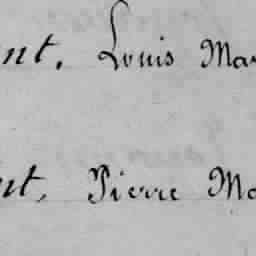 nt. Louis Mar
nt, Pierre Ma